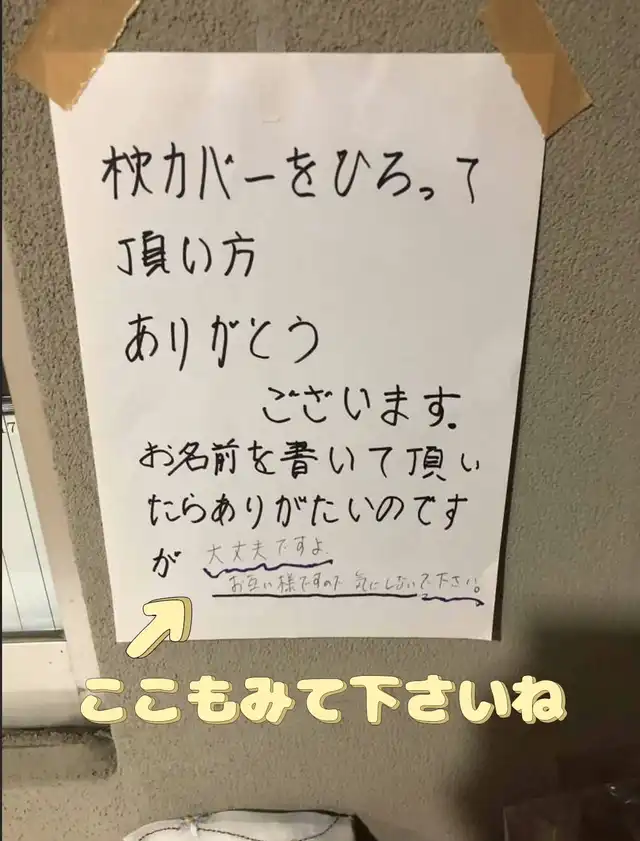 枕カバーをひろって
頂い方
ありがとう
ございます.
お名前を書いて頂い
たらありがたいのです
が 大丈夫ですよ.
お互い様ですので 気にしないで下さい。
ここもみて下さいね
7